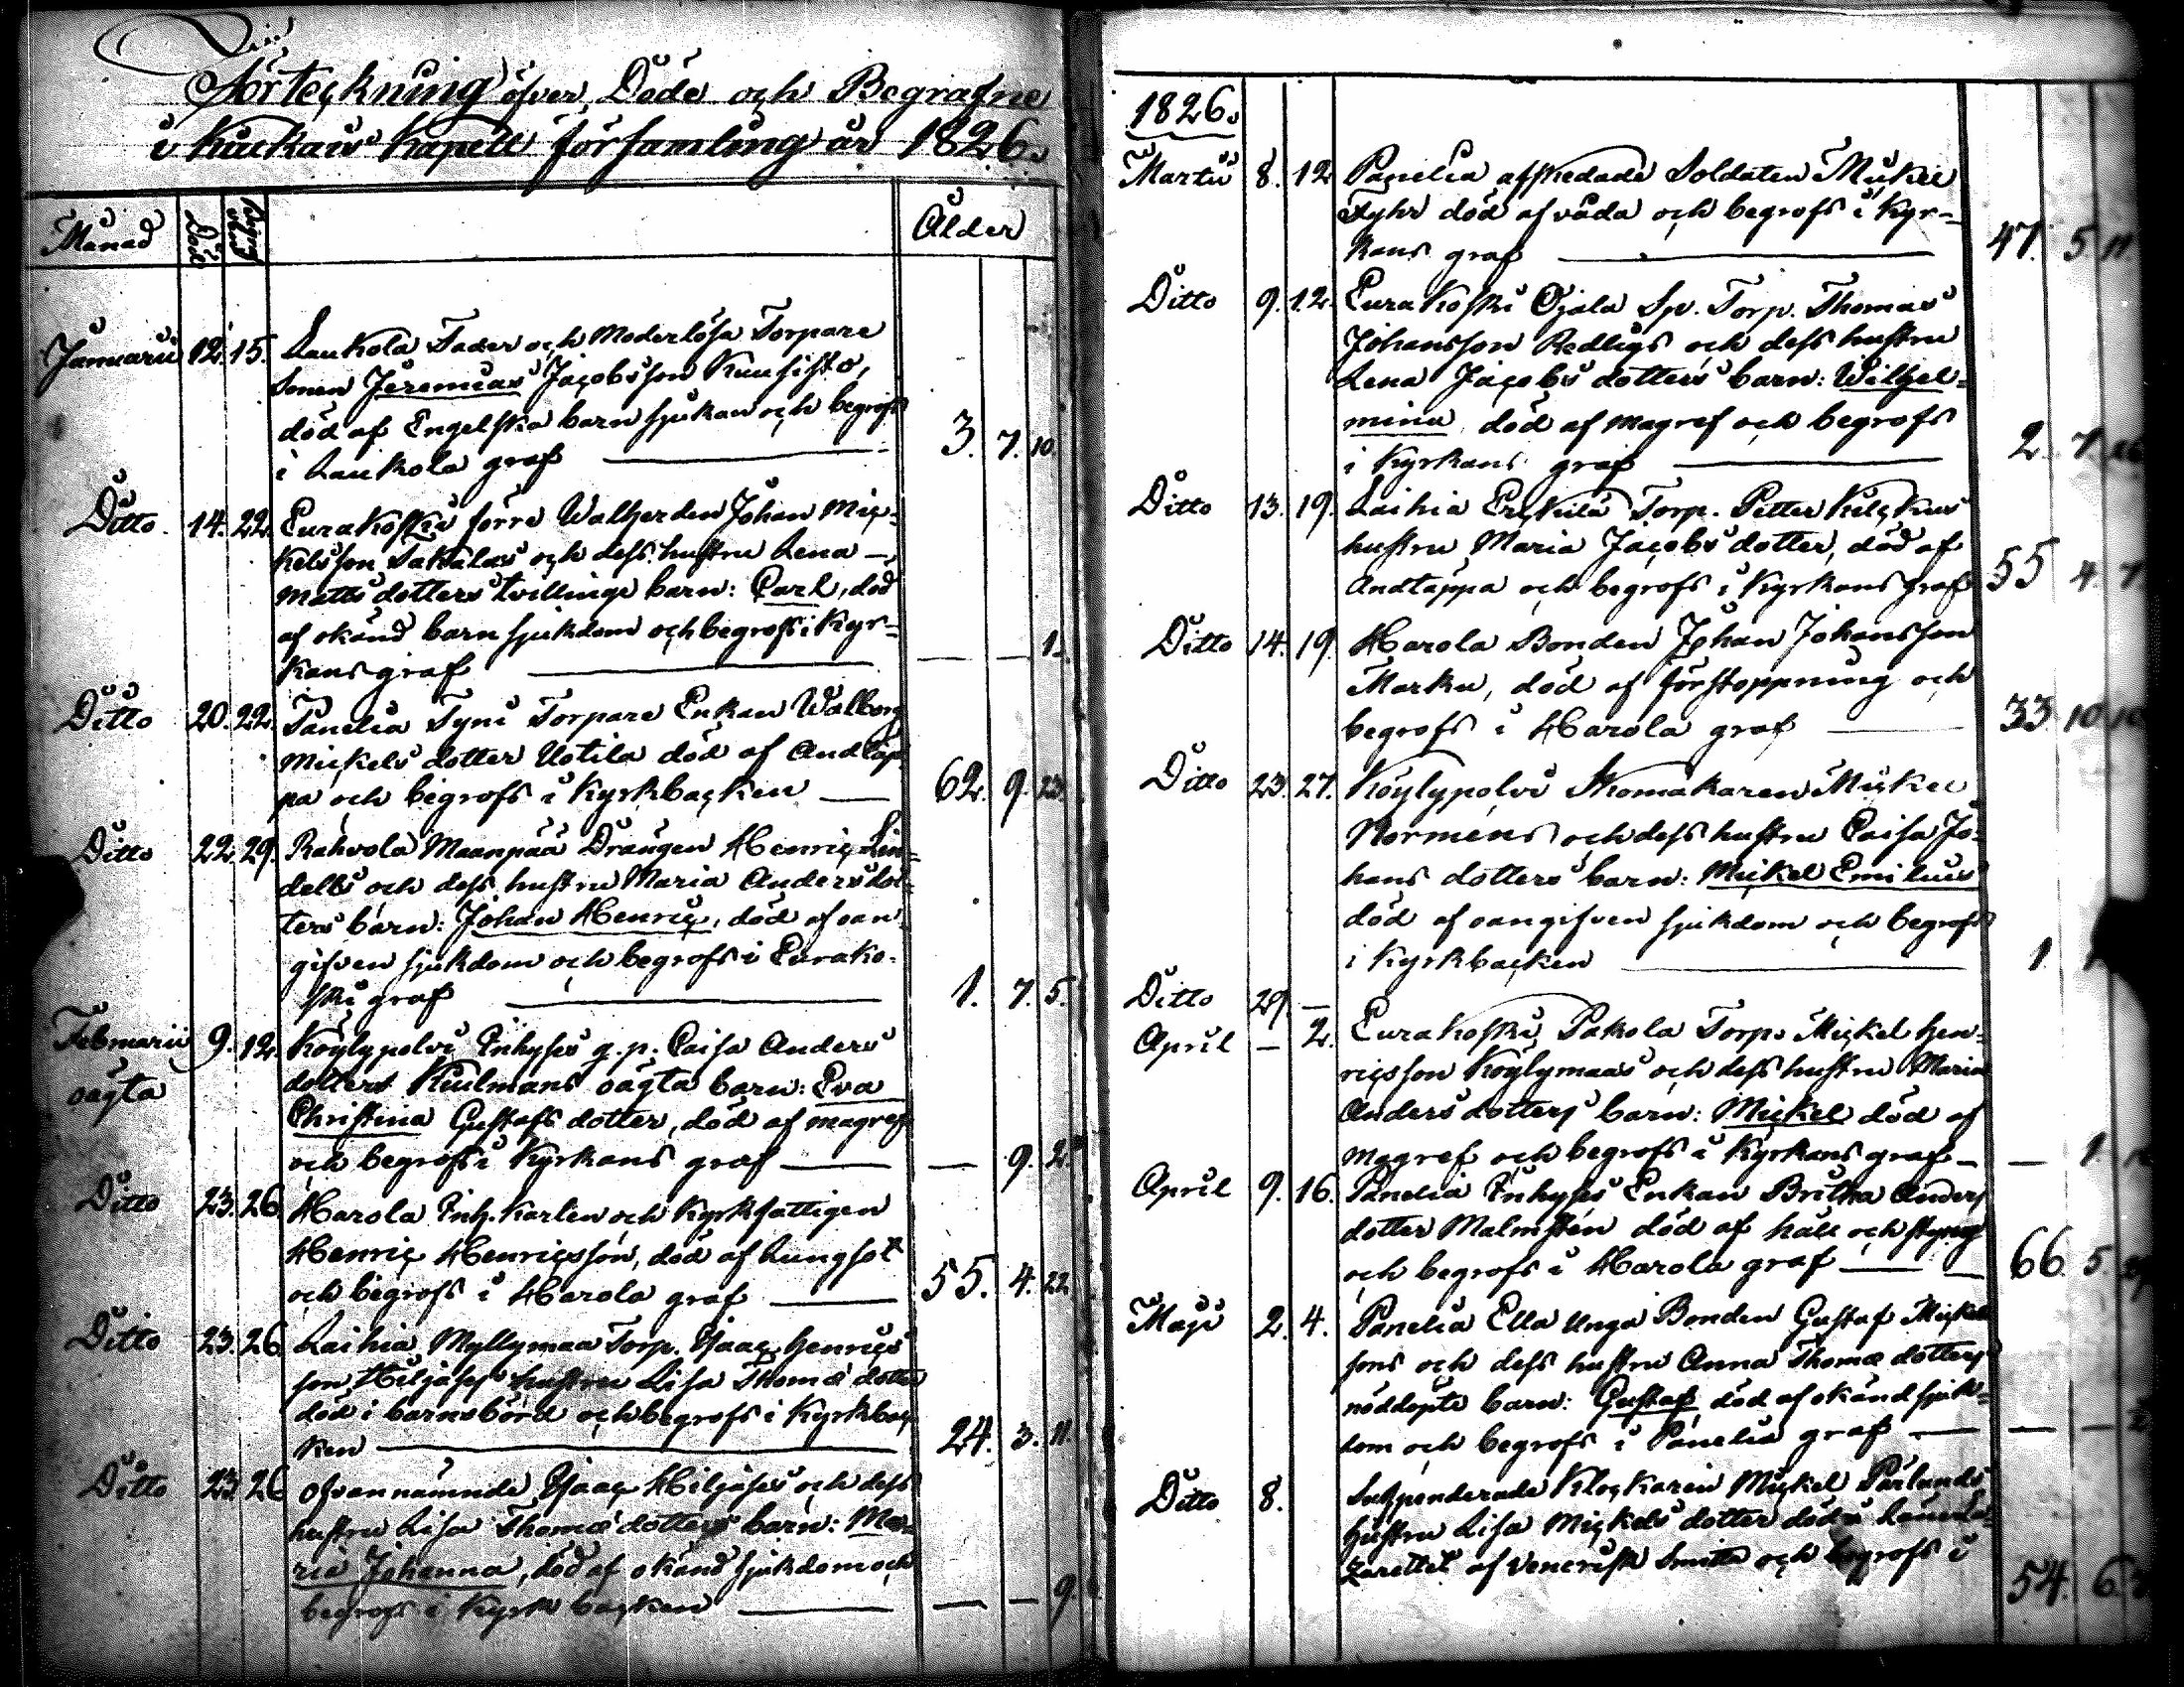 Förteckning öfver Döde och Begrafne
i Kiukais Kapell församling år 1826.
Månad Död Begrafning Ålder
Januarii 12. 15. Laukola Fader och Moderlösa Torpare
Sonen Jeremias Jacobsson Kuusisto,
död af Engelska barnsjukan och begrofs
i Laukola graf 3. 7. 10.
Ditto 14. 22. Eurakoski förre Walherden Johan Mic-
kelsson Sakalas och dess hustru Lena
Mattsdotters tvillinge barn: Carl, död
af okänd barnsjukdom och begrofs i Kyr-
kans graf — — 1.
Ditto 20. 22. Panelia Tyni Torpare Enkan Walborg
Mickelsdotter Uotila död af Andtäp-
pa och begrofs i Kyrkbacken 62. 9. 23.
Ditto 22. 29. Rahvola Maanpää Drängen Henric Lin-
dells och dess hustru Maria Andersdot-
ters barn: Johan Henric, död af oan-
gifven sjukdom och begrofs i Eurako-
ski graf 1. 7. 5.
Februarii 9. 12. Köylypolvi Inhyses q.p. Caisa Anders
oägta dotters Kuulmans oägta barn: Eva
Christina Gustafsdotter, död af magref
och begrofs i Kyrkans graf — 9. 2.
Ditto 23. 26 Harola Inh. Karlen och Kyrkfattigen
Henric Henricsson, död af Lungsot
och begrofs i Harola graf 55. 4. 22
Ditto 23. 26 Laihia Myllymaa Torp. Isaac Henrics
son Hiljases hustru Lisa Thomædotter
död i barnsbörd och begrofs i Kyrkbac-
ken 24. 3. 11.
Ditto 23. 26 Ofvannämnde Isaac Hiljases och dess
hustru Lisa Thomædotters barn: Ma-
ria Johanna, död af okänd sjukdom och
begrofs i Kyrkbacken — — 9.
1826.
Martii 8. 12 Panelia afskedade Soldaten Mickel
Fyhr död af våda och begrofs i Kyr-
kans graf 47. 5. 11.
Ditto 9. 12. Eurakoski Ojala Sp. Torp. Thomas
Johansson Redligs och dess hustru
Lena Jacobsdotters barn: Wilhel-
mina död af magref och begrofs
i Kyrkans graf 2. 7.
Ditto 13. 19. Laihia Erckilä Torp. Petter Kilckus
hustru Maria Jacobsdotter, död af
Andtäppa och begrofs i Kyrkans graf 55 4. 7
Ditto 14. 19. Harola Bonden Johan Johansson
Marku, död af förstoppning och
begrofs i Harola graf 33 10 10
Ditto 23. 27. Köylypolvi Skomakaren Mickel
Norméns och dess hustru Caisa Jo-
hansdotters barn: Mickel Emilius
död af oangifven sjukdom och begrofs
i Kyrkbacken 1.
Ditto 29. —
April — 2. Eurakoski Pakola Torp. Mickel Hen-
ricsson Köylymaas och dess hustru Maria
Andersdotters barn: Mickel död af
magref och begrofs i Kyrkans graf — 1.
April 9. 16. Panelia Inhyses Enkan Britha Anders
dotter Malmstén död af håll och styng
och begrofs i Harola graf 66 5
Maji 2. 4. Panelia Ella Unga Bonden Gustaf Mickels
sons och dess hustru Anna Thomædotters
nöddöpte barn: Gustaf död af okänd sjuk-
dom och begrofs i Panelia graf — —
Ditto 8. Suspenderade Klockaren Mickel Pärlunds
hustru Lisa Mickelsdotter död i Läns La-
zarettet af Venerisk Smitta och begrofs i
54. 6.